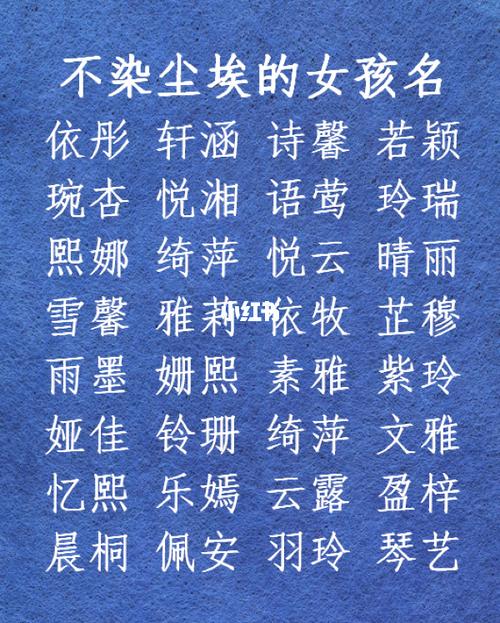 不染尘埃的女孩名
依彤 轩涵 诗馨 若颖
琬杏 悦湘 语莺 玲瑞
熙娜 绮萍 悦云 晴丽
雪馨 雅莉 依牧 芷穆
小红书
雨墨 姗熙 素雅 紫玲
娅佳 铃珊 绮萍 文雅
忆熙 乐嫣 云露 盈梓
晨桐 佩安 羽玲 琴艺